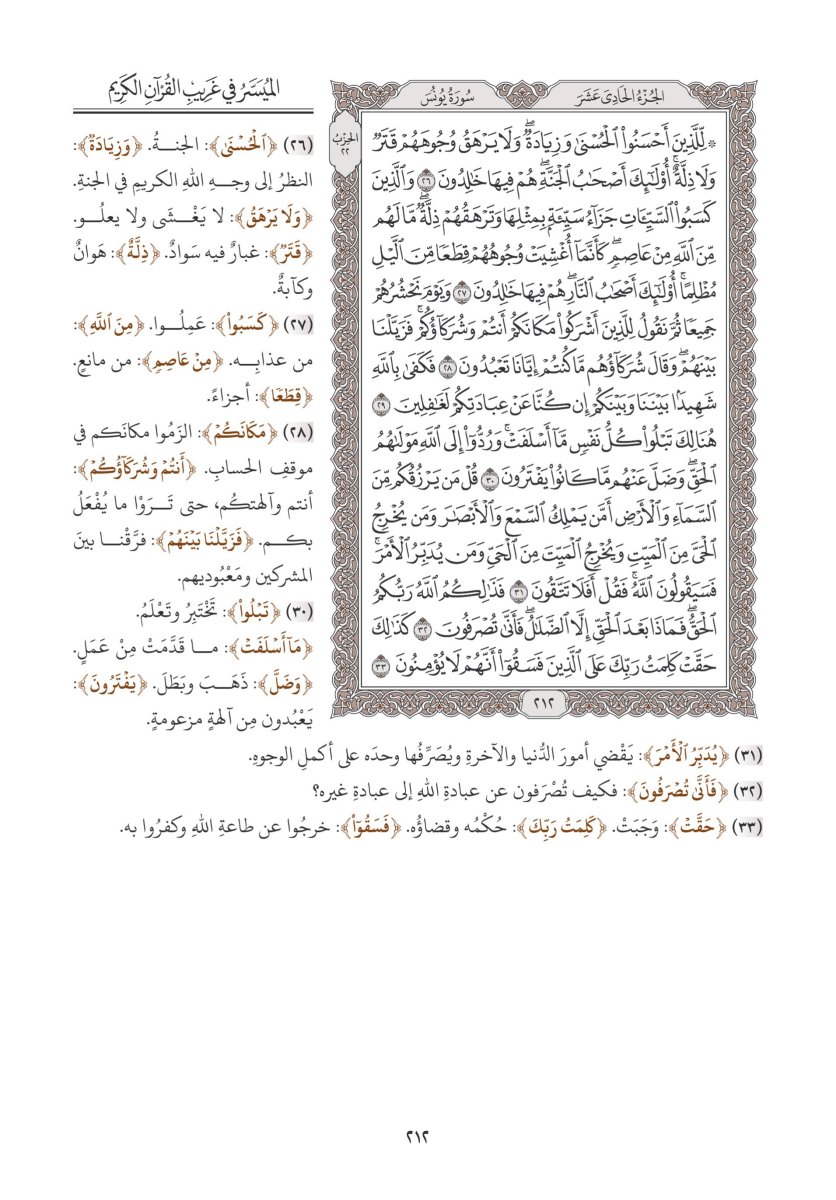 الجُزْءُ الحَادِي عَشَرَ
سُورَةُ يُونُسَ
الحِزْبُ
٢٢
* لِّلَّذِينَ أَحْسَنُواْ ٱلْحُسْنَىٰ وَزِيَادَةٌۖ وَلَا يَرْهَقُ وُجُوهَهُمْ قَتَرٌ
وَلَا ذِلَّةٌۚ أُوْلَٰٓئِكَ أَصْحَٰبُ ٱلْجَنَّةِۖ هُمْ فِيهَا خَٰلِدُونَ ٢٦ وَٱلَّذِينَ
كَسَبُواْ ٱلسَّيِّـَٔاتِ جَزَآءُ سَيِّئَةِۭ بِمِثْلِهَا وَتَرْهَقُهُمْ ذِلَّةٌۖ مَّا لَهُم
مِّنَ ٱللَّهِ مِنْ عَاصِمٖۖ كَأَنَّمَآ أُغْشِيَتْ وُجُوهُهُمْ قِطَعًا مِّنَ ٱلَّيْلِ
مُظْلِمًاۚ أُوْلَٰٓئِكَ أَصْحَٰبُ ٱلنَّارِۖ هُمْ فِيهَا خَٰلِدُونَ ٢٧ وَيَوْمَ نَحْشُرُهُمْ
جَمِيعًا ثُمَّ نَقُولُ لِلَّذِينَ أَشْرَكُواْ مَكَانَكُمْ أَنتُمْ وَشُرَكَآؤُكُمْۚ فَزَيَّلْنَا
بَيْنَهُمْۖ وَقَالَ شُرَكَآؤُهُم مَّا كُنتُمْ إِيَّانَا تَعْبُدُونَ ٢٨ فَكَفَىٰ بِٱللَّهِ
شَهِيدًۢا بَيْنَنَا وَبَيْنَكُمْ إِن كُنَّا عَنْ عِبَادَتِكُمْ لَغَٰفِلِينَ ٢٩
هُنَالِكَ تَبْلُواْ كُلُّ نَفْسٖ مَّآ أَسْلَفَتْۚ وَرُدُّوٓاْ إِلَى ٱللَّهِ مَوْلَىٰهُمُ
ٱلْحَقِّۖ وَضَلَّ عَنْهُم مَّا كَانُواْ يَفْتَرُونَ ٣٠ قُلْ مَن يَرْزُقُكُم مِّنَ
ٱلسَّمَآءِ وَٱلْأَرْضِ أَمَّن يَمْلِكُ ٱلسَّمْعَ وَٱلْأَبْصَٰرَ وَمَن يُخْرِجُ
ٱلْحَيَّ مِنَ ٱلْمَيِّتِ وَيُخْرِجُ ٱلْمَيِّتَ مِنَ ٱلْحَيِّ وَمَن يُدَبِّرُ ٱلْأَمْرَۚ
فَسَيَقُولُونَ ٱللَّهُۚ فَقُلْ أَفَلَا تَتَّقُونَ ٣١ فَذَٰلِكُمُ ٱللَّهُ رَبُّكُمُ
ٱلْحَقُّۖ فَمَاذَا بَعْدَ ٱلْحَقِّ إِلَّا ٱلضَّلَٰلُۖ فَأَنَّىٰ تُصْرَفُونَ ٣٢ كَذَٰلِكَ
حَقَّتْ كَلِمَتُ رَبِّكَ عَلَى ٱلَّذِينَ فَسَقُوٓاْ أَنَّهُمْ لَا يُؤْمِنُونَ ٣٣
٢١٢
المُيَسَّرُ في غَرِيبِ القُرْآنِ الكَرِيمِ
(٢٦) ﴿ٱلْحُسْنَىٰ﴾: الجنـــةُ. ﴿وَزِيَادَةٌ﴾:
النظرُ إلى وجـــهِ اللهِ الكريمِ في الجنةِ.
﴿وَلَا يَرْهَقُ﴾: لا يَغْـــشَى ولا يعلُـــو.
﴿قَتَرٌ﴾: غبارٌ فيه سَوادٌ. ﴿ذِلَّةٌ﴾: هَوانٌ
وكآبةٌ.
(٢٧) ﴿كَسَبُواْ﴾: عَمِلُـــوا. ﴿مِنَ ٱللَّهِ﴾:
من عذابِـــه. ﴿مِنْ عَاصِمٖ﴾: من مانعٍ.
﴿قِطَعًا﴾: أجزاءً.
(٢٨) ﴿مَكَانَكُمْ﴾: الزَمُوا مكانَكم في
موقفِ الحسابِ. ﴿أَنتُمْ وَشُرَكَآؤُكُمْ﴾:
أنتم وآلهتكُم، حتى تَـــرَوْا ما يُفْعَلُ
بكـــم. ﴿فَزَيَّلْنَا بَيْنَهُمْ﴾: فرَّقْنـــا بينَ
المشركين ومَعْبُوديهم.
(٣٠) ﴿تَبْلُواْ﴾: تَخْتَبِرُ وتَعْلَمُ.
﴿مَآ أَسْلَفَتْ﴾: مـــا قدَّمَتْ مِنْ عَمَلٍ.
﴿وَضَلَّ﴾: ذَهَـــبَ وبَطَلَ. ﴿يَفْتَرُونَ﴾:
يَعْبُدون مِن آلهةٍ مزعومةٍ.
(٣١) ﴿يُدَبِّرُ ٱلْأَمْرَ﴾: يَقْضي أمورَ الدُّنيا والآخرةِ ويُصَرِّفُها وحدَه على أكملِ الوجوهِ.
(٣٢) ﴿فَأَنَّىٰ تُصْرَفُونَ﴾: فكيف تُصْرَفون عن عبادةِ اللهِ إلى عبادةِ غيره؟
(٣٣) ﴿حَقَّتْ﴾: وَجَبَتْ. ﴿كَلِمَتُ رَبِّكَ﴾: حُكْمُه وقضاؤُه. ﴿فَسَقُوٓاْ﴾: خرجُوا عن طاعةِ اللهِ وكفرُوا به.
٢١٢